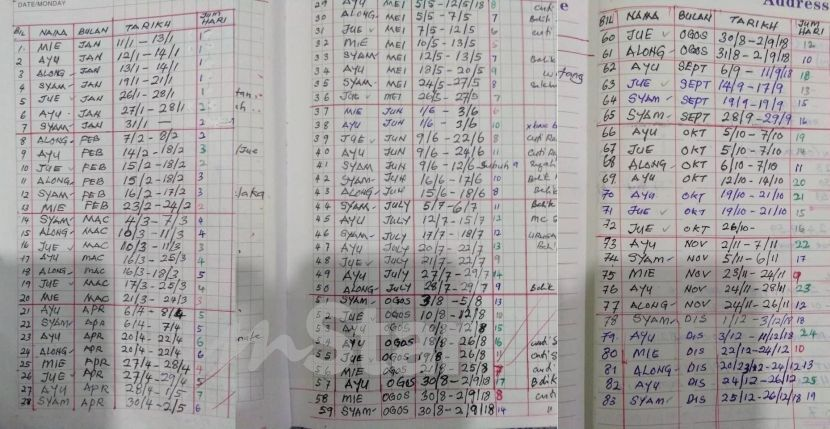 DATE/MONDAY
BIL NAMA BULAN TARIKH JUM HARI
1 MIE JAN 11/1 - 13/1 1
2 AYU JAN 12/1 - 14/1 1
3 ALONG JAN 13/1 - 14/1 1
4 SYAM JAN 19/1 - 21/1 1
5 JUE JAN 26/1 - 28/1 1
6 AYU JAN 27/1 - 28/1 2
7 SYAM JAN 31/1 - 2
8 ALONG FEB 7/2 - 8/2 2
9 AYU FEB 14/2 - 18/2 3
10 JUE FEB 15/2 - 18/2 2
11 ALONG FEB 15/2 - 18/2 3
12 SYAM FEB 16/2 - 17/2 3
13 MIE FEB 23/2 - 24/2 2
14 SYAM MAC 4/3 - 7/3 4
15 ALONG MAC 10/3 - 11/3 4
16 JUE MAC 10/3 - 11/3 3
17 AYU MAC 16/3 - 25/3 4
18 ALONG MAC 16/3 - 18/3 5
19 JUE MAC 17/3 - 25/3 4
20 MIE MAC 21/3 - 24/3 3
21 AYU APR 6/4 - 8/4 5
22 SYAM APR 6/4 - 7/4 5
23 AYU APR 20/4 - 22/4 6
24 ALONG APR 20/4 - 22/4 6
25 MIE APR 27/4 - 28/4 4
26 JUE APR 27/4 - 29/4 5
27 AYU APR 28/4 - 1/5 7
28 SYAM APR 30/4 - 2/5 6
29 AYU MEI 5/5 - 12/5/18 8 cuti
30 ALONG MEI 5/5 - 7/5 7 Balik
31 JUE MEI 7/5 - 12/5 6 cuti
32 MIE MEI 10/5 - 13/5 5
33 SYAM MEI 12/5 - 13/5 7 Balik
34 AYU MEI 18/5 - 20/5 9
35 SYAM MEI 24/5 - 27/5 8
36 JUE MEI 26/5 - 27/5 7
37 MIE JUN 1/6 - 3/6 6
38 AYU JUN 1/6 - 3/6 10
39 JUE JUN 9/6 - 22/6 8 cuti
40 AYU JUN 9/6 - 24/6 11 Cuti
41 SYAM JUN 9/6 - 12/6 9
42 SYAM JUN 16/6 - 17/6 10 Balik
43 ALONG JUN 15/6 - 18/6 8 Balik
44 SYAM JULY 5/7 - 6/7 11 Balik
45 AYU JULY 12/7 - 15/7 12 MC
46 SYAM JULY 17/7 - 18/7 12
47 AYU JULY 20/7 - 22/7 13
48 JUE JULY 21/7 - 22/7 9
49 AYU JULY 27/7 - 29/7 14
50 ALONG JULY 28/7 - 29/7 9 Balik
51 SYAM OGOS 3/8 - 5/8 13
52 JUE OGOS 10/8 - 12/8 10
53 AYU OGOS 10/8 - 12/8 15
54 AYU OGOS 18/8 - 26/8 16
55 JUE OGOS 19/8 - 26/8 11
56 MIE OGOS 21/8 - 25/8 7
57 AYU OGOS 30/8 - 2/9/18 17 Balik
58 MIE OGOS 30/8 - 2/9/18 8 cuti
59 SYAM OGOS 30/8 - 2/9/18 14 "
Address
BIL NAMA BULAN TARIKH JUM HARI
60 JUE OGOS 30/8 - 2/9/18 12
61 ALONG OGOS 31/8 - 2/9/18 10
62 AYU SEPT 6/9 - 11/9/18 18
63 JUE SEPT 14/9 - 17/9 13
64 SYAM SEPT 19/9 - 19/9 15
65 SYAM SEPT 28/9 - 29/9 16
66 AYU OKT 5/10 - 7/10 19
67 JUE OKT 5/10 - 7/10 14
68 ALONG OKT 6/10 - 7/10 11
69 AYU OKT 12/10 - 14/10 20
70 AYU OKT 19/10 - 21/10 21
71 JUE OKT 19/10 - 21/10 15
72 JUE OKT 26/10 -
73 AYU NOV 2/11 - 7/11 22
74 SYAM NOV 5/11 - 6/11 17
75 MIE NOV 23/11 - 24/11 9
76 AYU NOV 24/11 - 28/11 23
77 ALONG NOV 24/11 - 26/11 12
78 SYAM DIS 1/12 - 3/12/18 18
79 AYU DIS 3/12 - 11/12/18 24
80 MIE DIS 22/12 - 24/12 10
81 ALONG DIS 20/12 - 24/12 13
82 AYU DIS 24/12 - 26/12 25
83 SYAM DIS 25/12 - 26/12/18 19